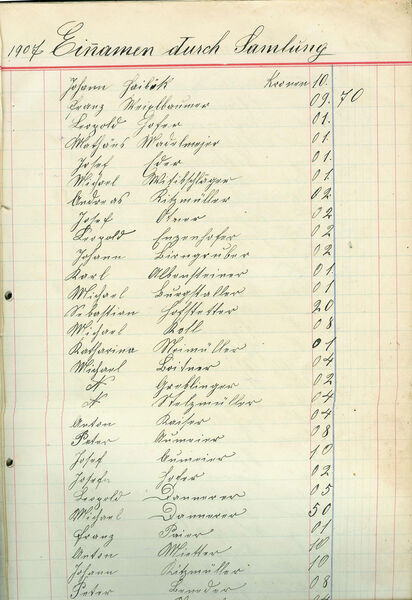 1907 Einnamen durch Samlung
Johann Haibök Kronen 10.
Franz Weiplbaumer 09. 70
Leopold Hofer 01.
Mathäus Madelmejer 01.
Josef Eder 01.
Michael 01
Andreas Kitzmüller 02
Josef 02
Leopold Enzenhofer 02
Johann Birngruber 02
Karl Altensteiner 01
Michael Burgstaller 01
Sebastian Hofstetter 20
Michael Koll 08
Katharina 01
Michael Leitner 04
N Groblinger 02
N Stelzmüller 04
Anton Kaiser 04
Peter Aumaier 08
Josef Aumaier 10
Josefa Hofer 02
Leopold Dannerer 05
Michael Dannerer 50
Franz Paier 01
Anton Mietter 10
Johann Kitzmüller 10
Peter 08